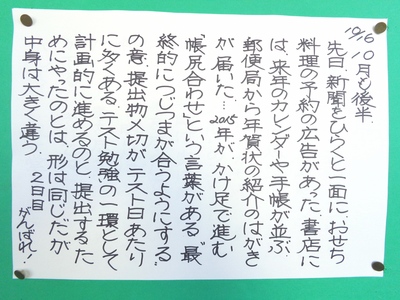 10/16 10月も後半。
先日、新聞をひらくと一面に、おせち
料理の予約の広告があった。書店に
は、来年のカレンダーや手帳が並ぶ。
郵便局から年賀状の紹介のはがき
が届いた…2015年が、かけ足で進む。
「帳尻合わせ」という言葉がある。"最
終的につじつまが合うようにする"
の意。提出物〆切が、テスト日あたり
に多くある。テスト勉強の一環として
計画的に進めるのと、提出するた
めにやったのとは、形は同じだが
中身は大きく違う。 2日目
がんばれ!